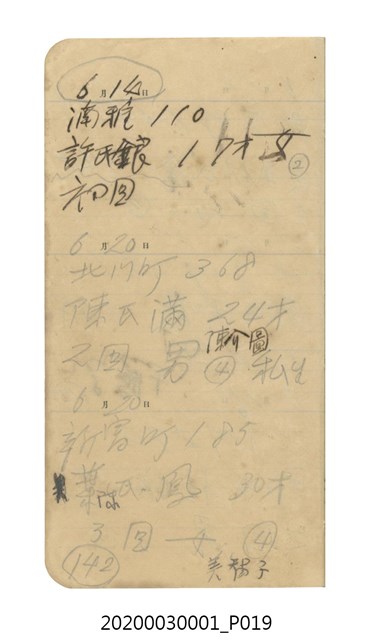 6月14日
湳雅 110
許氏銀 17才 女
②
初回
6月20日
北門町 368
陳氏滿 24才
陳介圖
2回 男 ④ 私生
6月20日
新富町 185
葉氏鳳 30才
3回 女 ④
142
美陽子
20200030001_P019